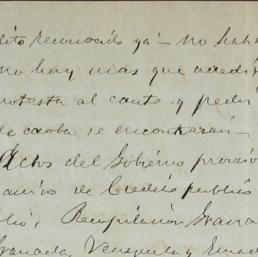 dito reconocido ya — No habe
no hay mas que acredi
rotesta al canto y pedir
de caoba se encontrasen —
Actos del Gobierno proviso
de Credito publico
Recopilación Grana
Granada, Venezuela y Ecuad